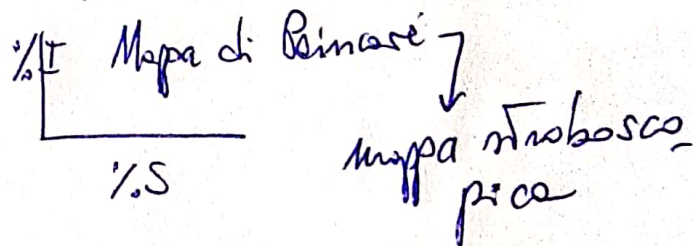 % I Mappa di Poincaré
mappa strobosco_
pica
% S